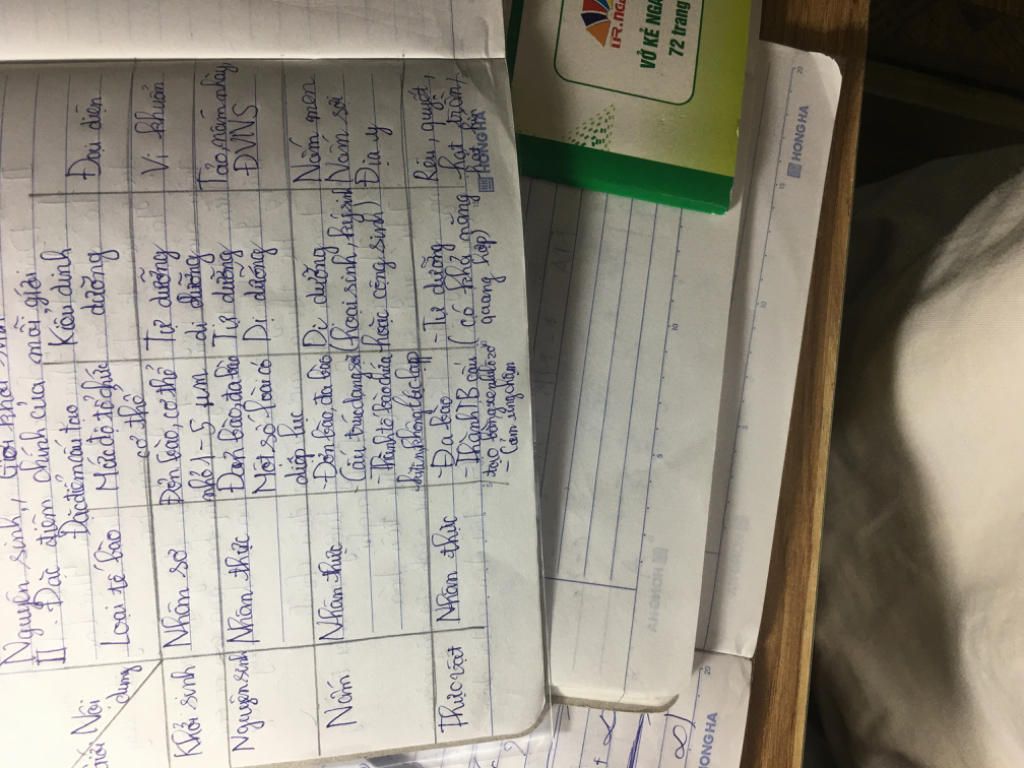 Nguyên sinh,
II. Đặc điểm chính của mỗi giới
Giới Nội dung
Đặc điểm cấu tạo
Loại tế bào
Mức độ tổ chức cơ thể
Kiểu dinh dưỡng
Đại diện
Khởi sinh
Nhân sơ
Đơn bào, cơ thể
nhỏ 1-5 µm
Tự dưỡng
dị dưỡng
Vi khuẩn
Nguyên sinh
Nhân thực
Đơn bào, đa bào
Một số loài có
diệp lục
Tự dưỡng
Dị dưỡng
Tảo, nấm nhày,
ĐVNS
Nấm
Nhân thực
- Đơn bào, đa bào
- Cấu trúc dạng sợi
- Thành tế bào chứa
kitin, không lục lạp
Dị dưỡng
(hoại sinh, kí sinh
hoặc cộng sinh)
Nấm men
Nấm sợi
Địa y
Thực vật
Nhân thực
- Đa bào
- Thành TB cấu
tạo bằng xenlulôzơ
- Cảm ứng chậm
- Tự dưỡng
(có khả năng
quang hợp)
Rêu, quyết,
hạt trần,
hạt kín
HONG HA
VỞ KẺ NGA
72 trang
HONG HA
HONG HA
HONG HA